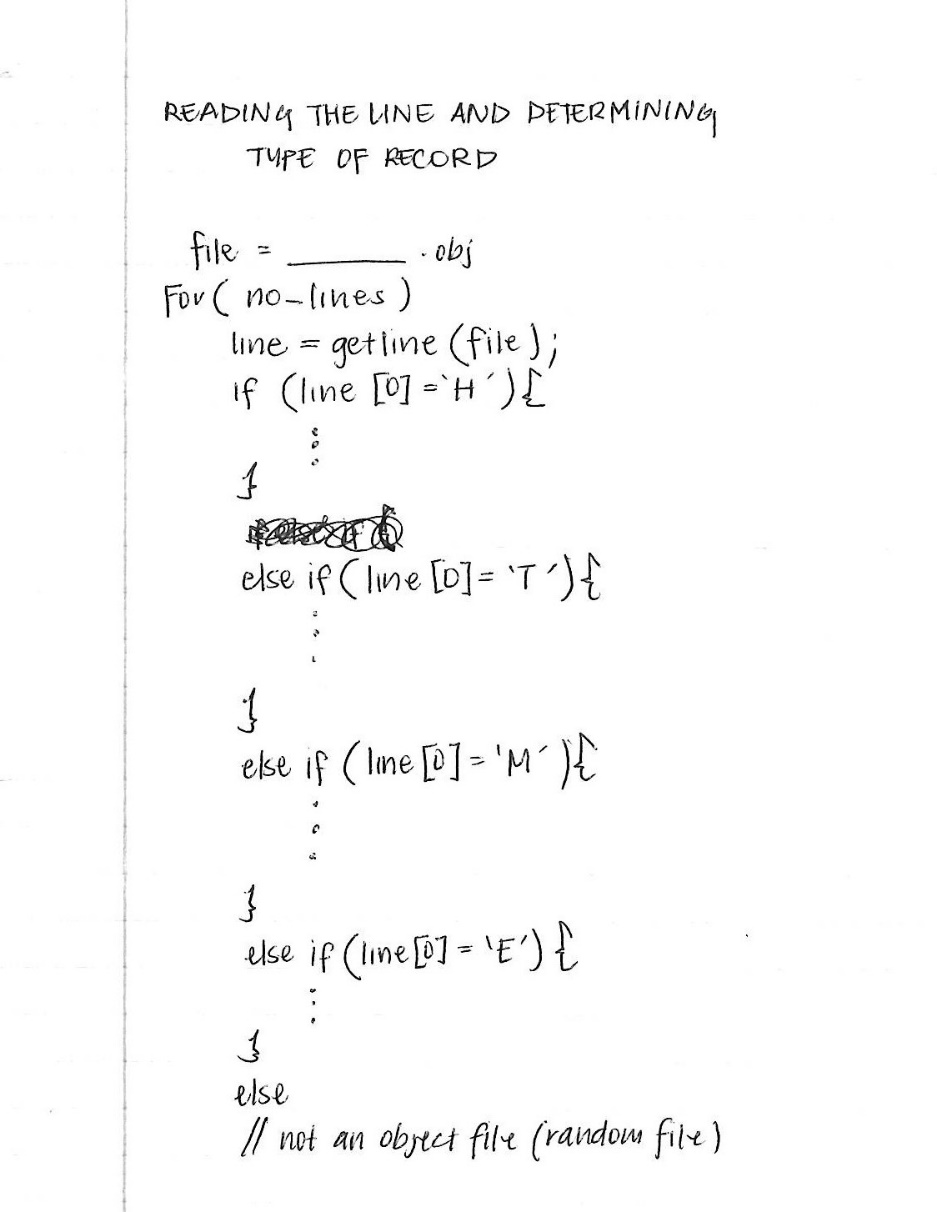 READING THE LINE AND DETERMINING
TYPE OF RECORD
file = ________ .obj
For ( no-lines )
line = getline (file);
if (line [0] = 'H'){
}
else if (line [0] = 'T'){
}
else if (line [0] = 'M'){
}
else if (line [0] = 'E') {
}
else
// not an object file (random file)